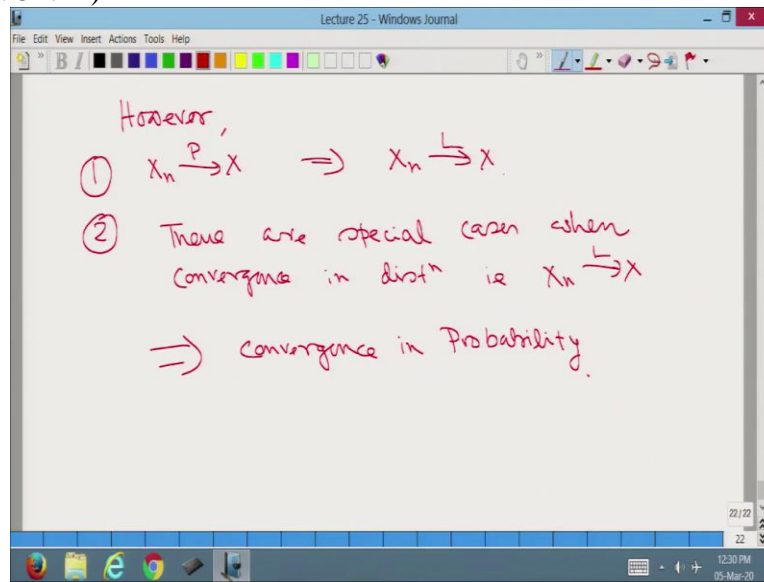 Lecture 25 - Windows Journal
File Edit View Insert Actions Tools Help
B I
However,
① Xₙ —P→ X ⇒ Xₙ —L→ X.
② There are special cases when
convergence in distⁿ ie Xₙ —L→ X
⇒ convergence in Probability.
22/22
22
12:30 PM
05-Mar-20